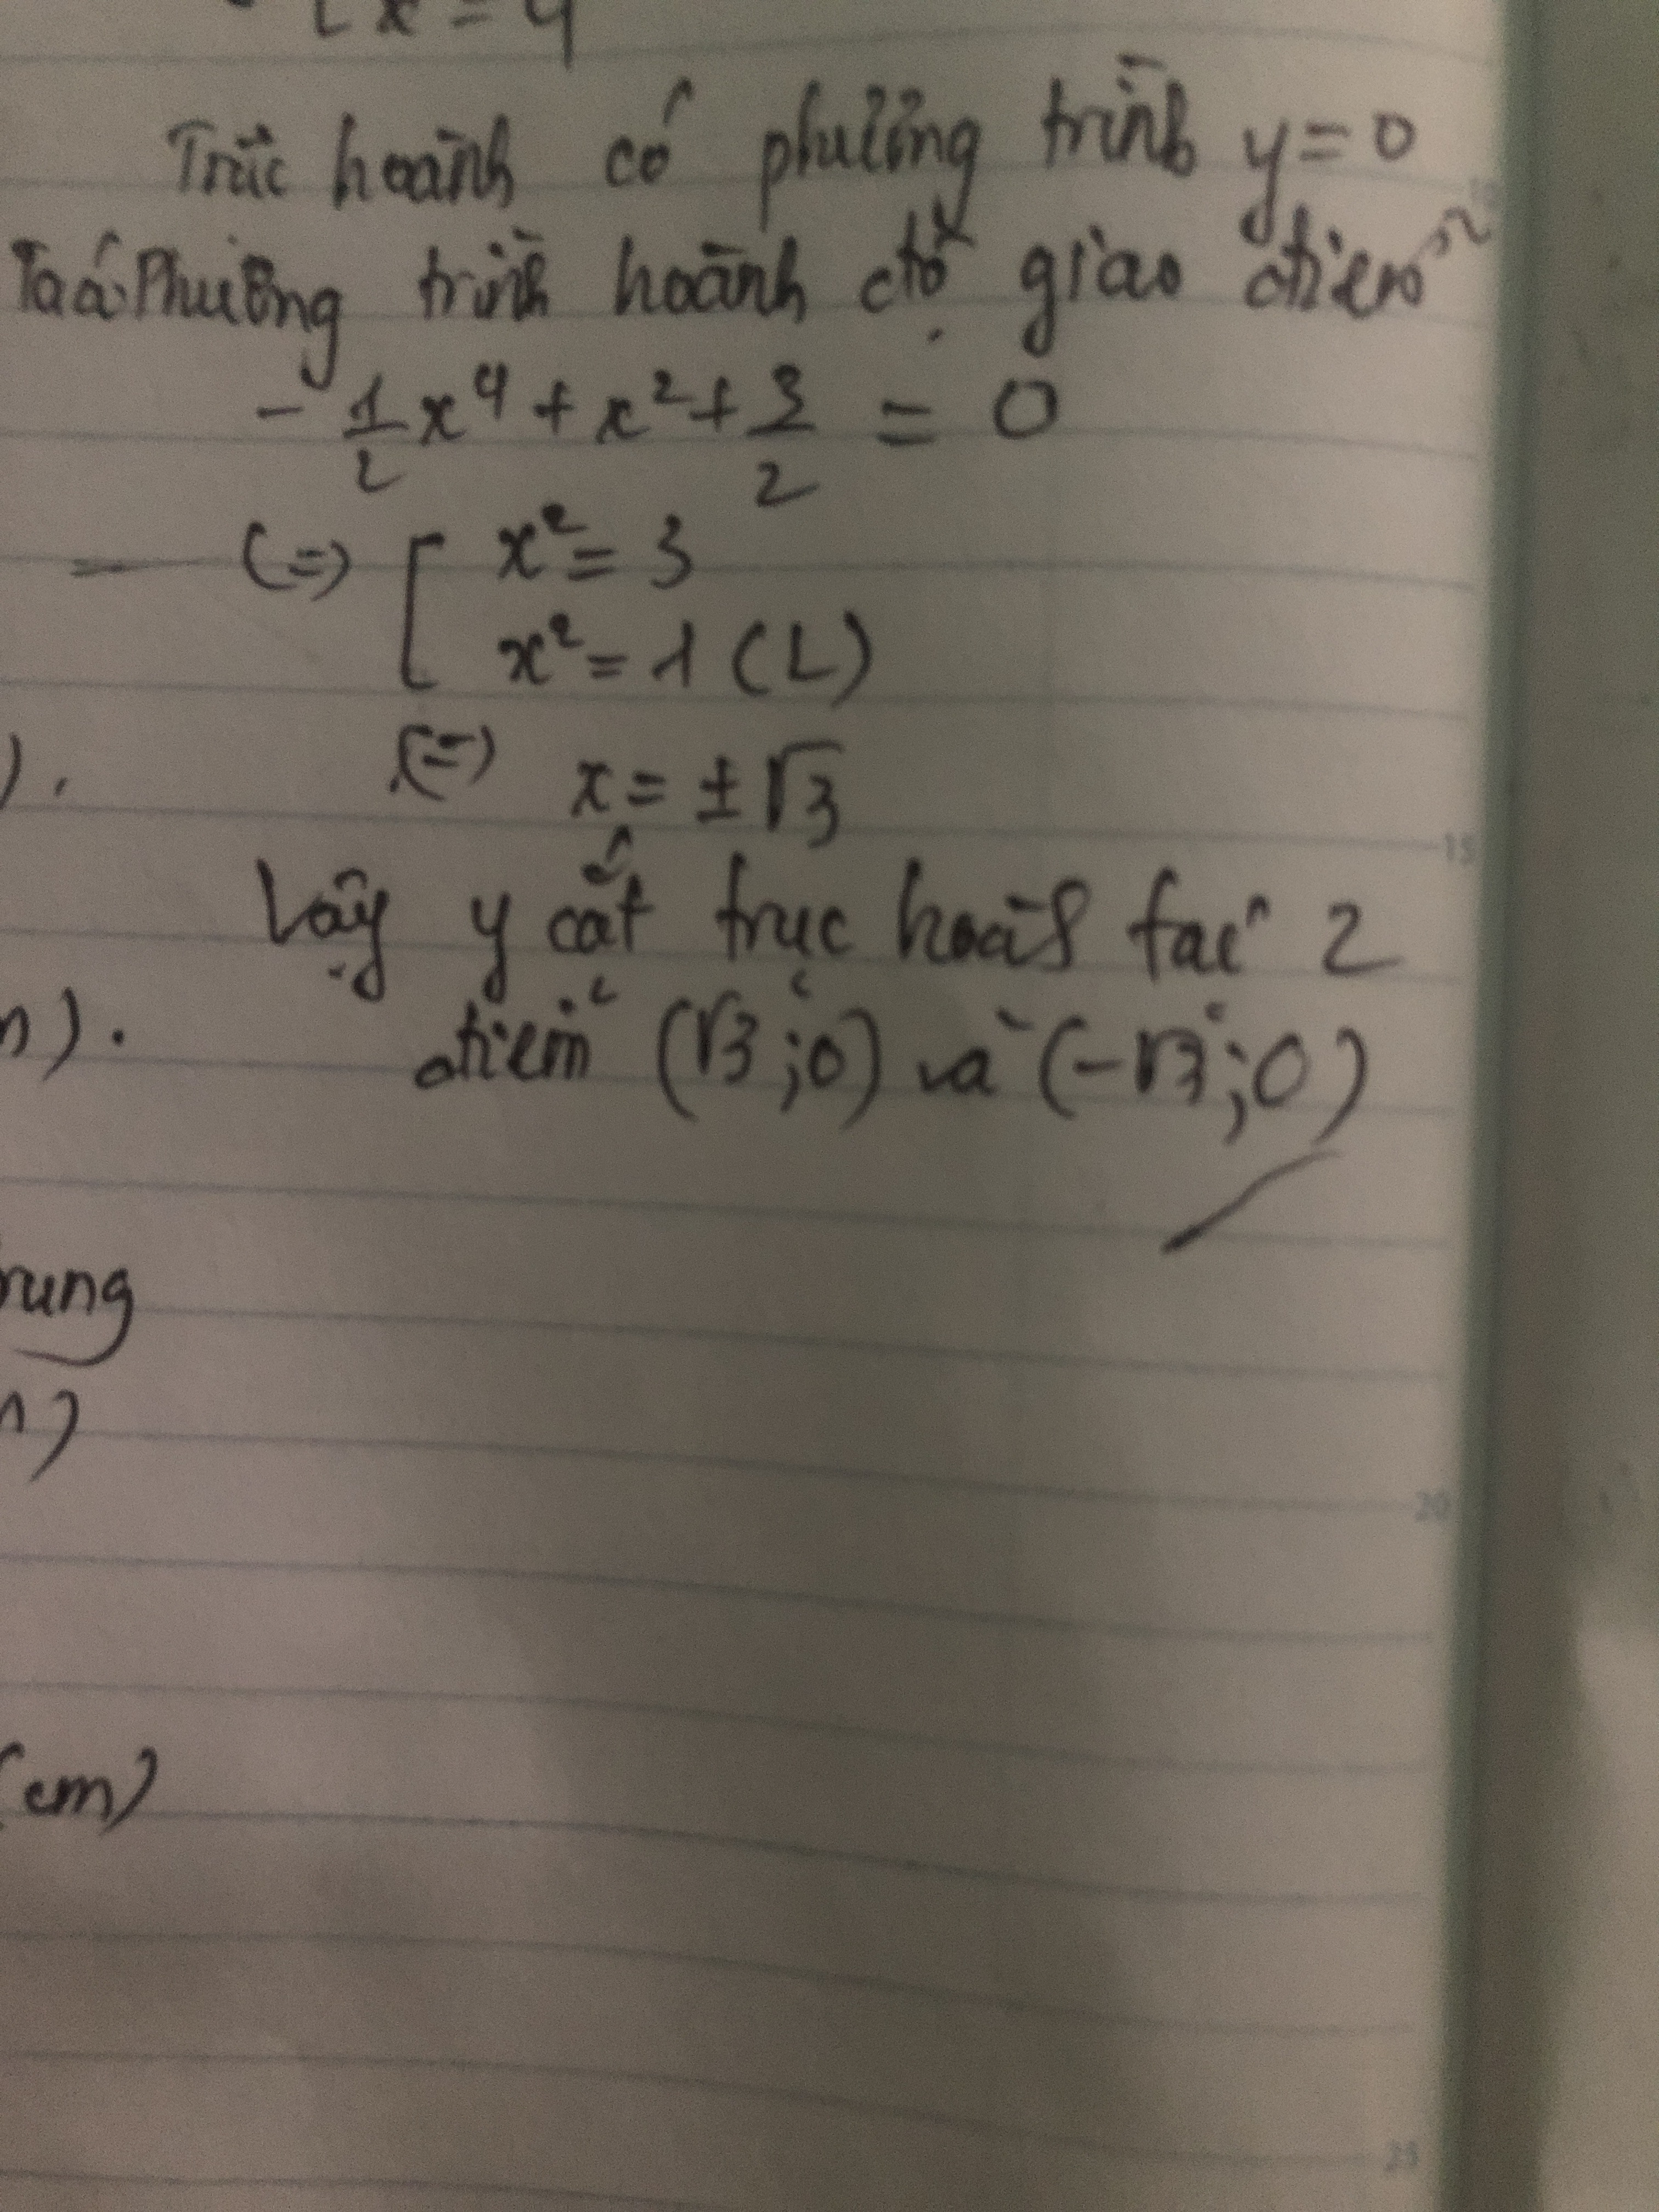 [x = 4
Trục hoành có phương trình y = 0
Ta có Phương trình hoành độ giao điểm
- 1/2 x⁴ + x² + 3/2 = 0
(=) [ x² = 3
x² = 1 (L)
).
(=) x = ± √3
Vậy y cắt trục hoành tại 2
n).
điểm (√3 ; 0) và (-√3 ; 0)
rung
n)
(cm)